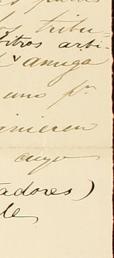 tribu-
itros arbi-
y amiga
uno pr
inieren
cuyo
tadores)
de